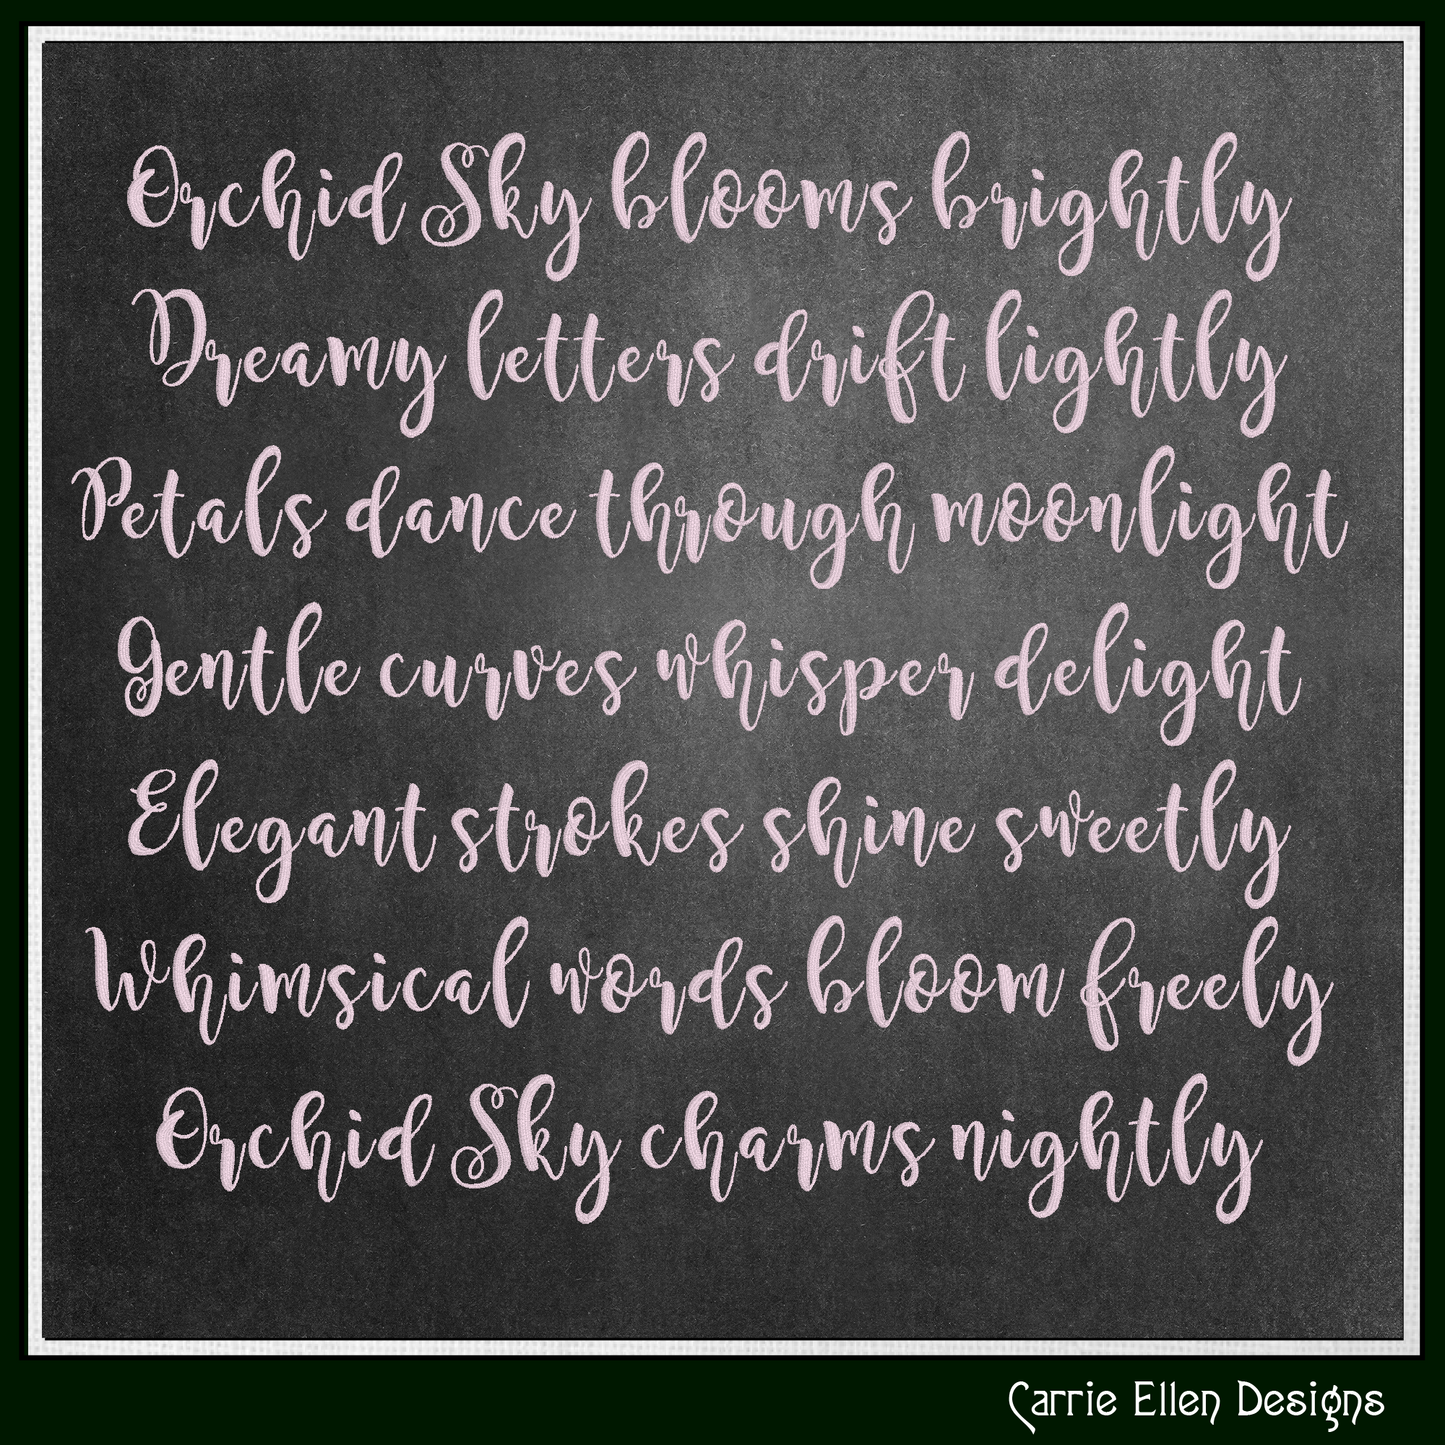 Orchid Sky blooms brightly
Dreamy letters drift lightly
Petals dance through moonlight
Gentle curves whisper delight
Elegant strokes shine sweetly
Whimsical words bloom freely
Orchid Sky charms nightly
Carrie Ellen Designs